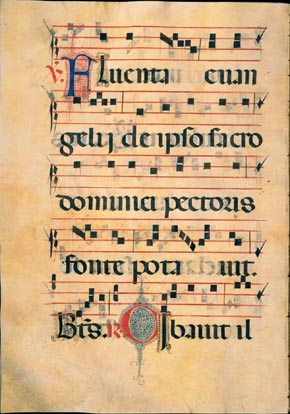 ℣. Fluenta euan
gelij de ipso sacro
dominici pectoris
fonte pota uit.
Bt̄s. ℟. Cibauit il